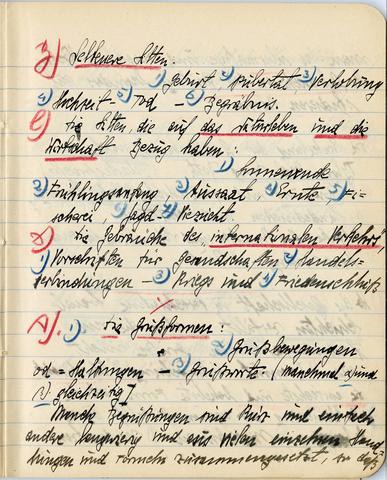 3) Seltenere Sitten:
1) Geburt 2) Pubertät 3) Verlobung
4) Hochzeit - 5) Tod - 6) Begräbnis.
die Sitten, die auf das Naturleben und die
Wirtschaft Bezug haben:
1) Sonnenwende
2) Frühlingsanfang, 3) Aussaat, 4) Ernte, 5) Fi-
scherei, 6) Jagd 7) Viezicht
die Gebräuche des internationalen Verkehrs,
1) Vorschriften für Gesandschaften 2) Handels-
verbindungen - 3) Kriege und 4) Friedenschluß
A). 1) die Grußformen:
1) Grußbewegungen
od = Haltungen - 2) Grußworte (manchmal 1) und
2) gleichzeitig)
Manche Begrüssungen sind kurz und einfach
andere langwierig und aus vielen einzelnen Hand-
lungen und Formeln zusammengesetzt, so daß